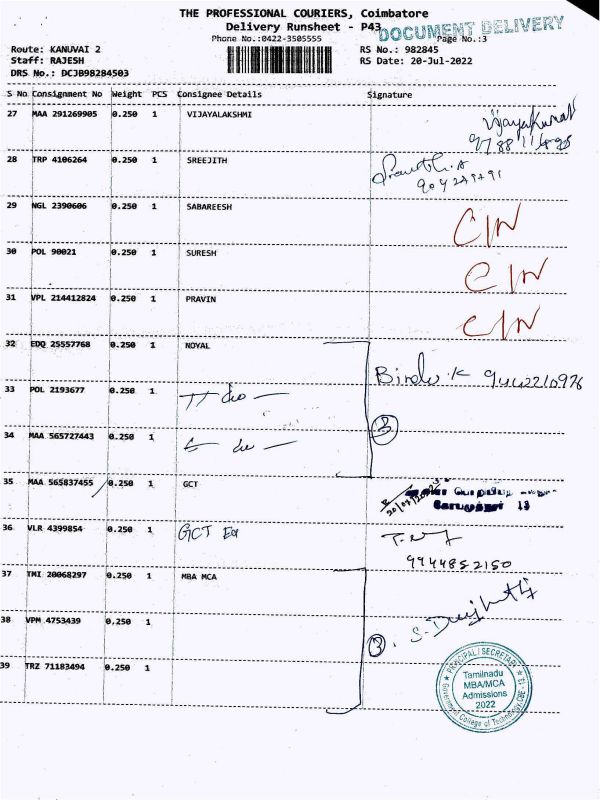 THE PROFESSIONAL COURIERS, Coimbatore
Delivery Runsheet - P43
DOCUMENT DELIVERY
Phone No.:0422-3505555
Page No.:3
Route: KANUVAI 2
RS No.: 982845
Staff: RAJESH
RS Date: 20-Jul-2022
DRS No.: DCJB98284503
S No Consignment No Weight PCS Consignee Details Signature
27 MAA 291269905 0.250 1 VIJAYALAKSHMI
28 TRP 4106264 0.250 1 SREEJITH
29 NGL 2390606 0.250 1 SABAREESH
C/N
30 POL 90021 0.250 1 SURESH
C/N
31 VPL 214412824 0.250 1 PRAVIN
C/N
32 EDQ 25557768 0.250 1 NOYAL
Bindu.K 9442210926
33 POL 2193677 0.250 1
3
34 MAA 565727443 0.250 1
35 MAA 565837455 0.250 1 GCT
36 VLR 4399854 0.250 1 GCT
9944852150
37 TMI 20068297 0.250 1 MBA MCA
38 VPM 4753439 0.250 1
3
39 TRZ 71183494 0.250 1
PRINCIPAL / SECRETARY
Tamilnadu
MBA/MCA
Admissions
2022
Government College of Technology, CBE-13